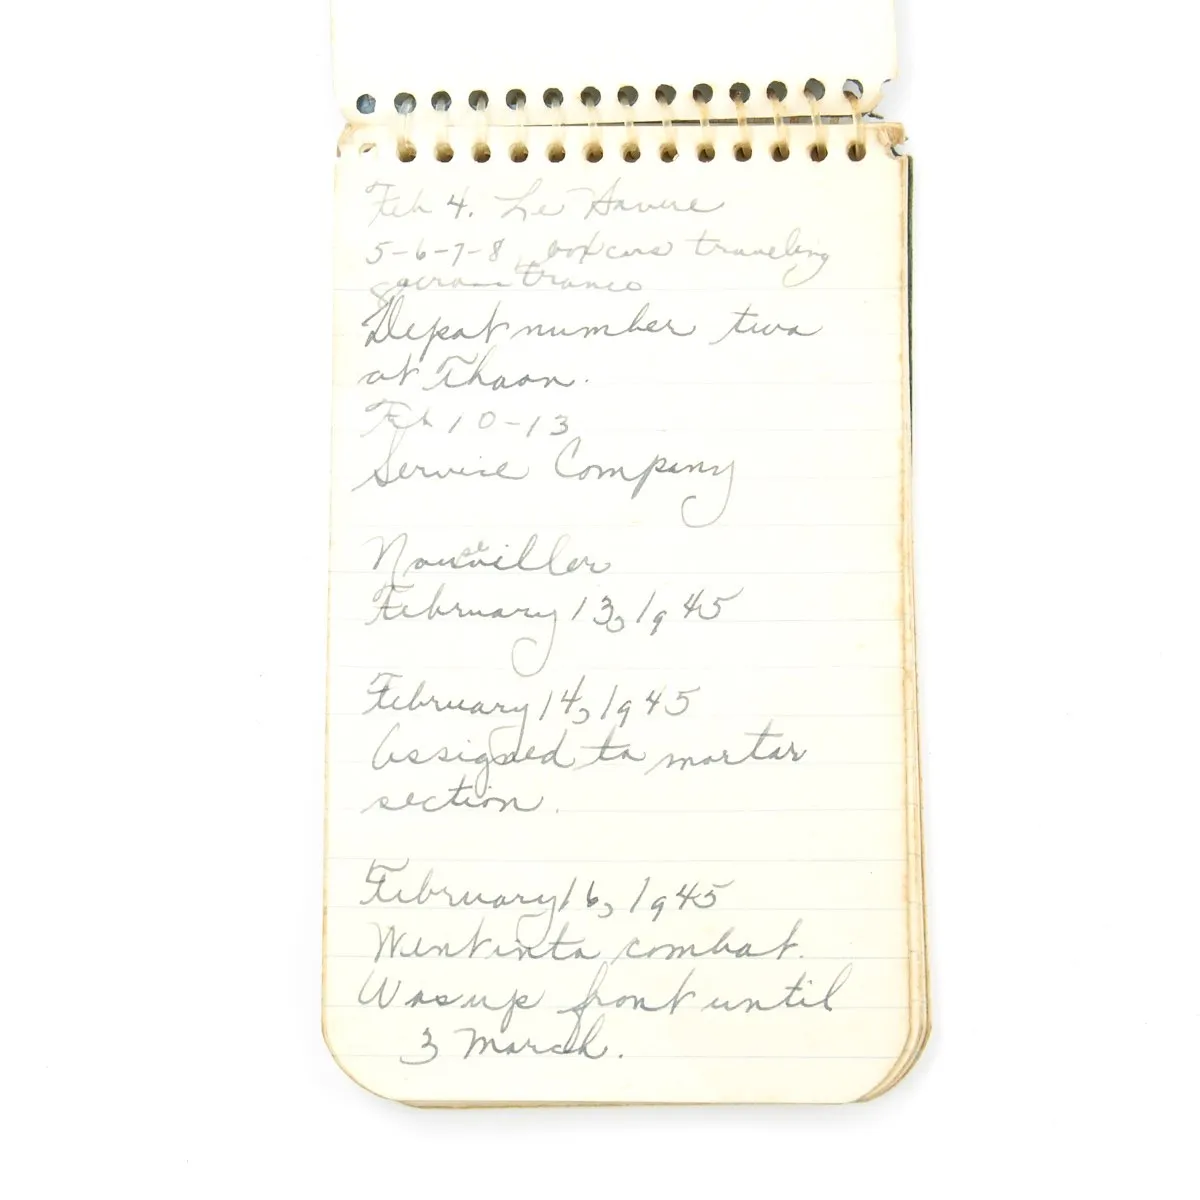 Feb 4. Le Havre
5-6-7-8, boxcars traveling
across France
Depot number two
at Thaon.
Feb 10-13
Service Company
Nousseviller
February 13, 1945
February 14, 1945
Assigned to mortar
section.
February 16, 1945
Went into combat.
Was up front until
3 March.